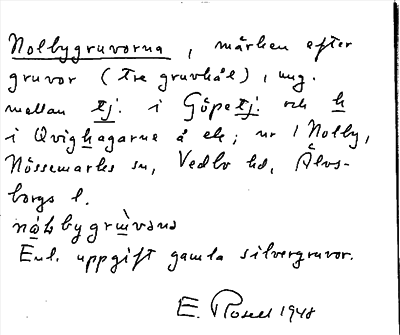 Nolbygruvorna, märken efter
gruvor (tre gruvhål), ung.
mellan tj. i Göpetj. och h
i Qvighagarne å ek; nr 1 Nolby,
Nössemarks sn, Vedbo hd, Älvs-
borgs l.
Enl. uppgift gamla silvergruvor.
E. Rosell 1948